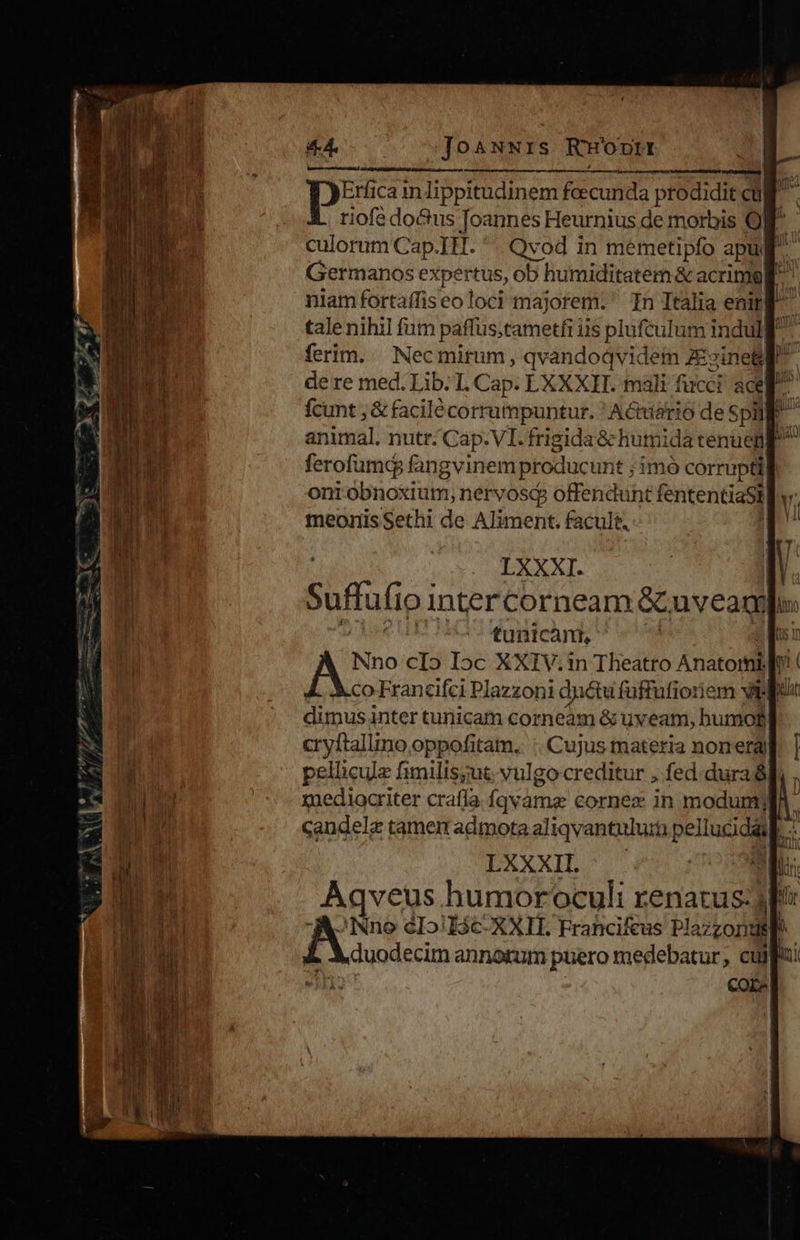 44 JOANNIS RHODII
PErſica in lippitudinem fœcunda prodidit cu
rioſè doctus Joannes Heurnius de morbis O
culorum Cap. III. Qvod in memetipſo apu
Germanos expertus, ob humiditatem & acrimo
niam fortaſſis eo loci majorem. In Italia enim
tale nihil ſum paſſus, tametſi iis pluſculum indul
ſerim. Nec mirum, qvando qvidem Æginetæ
de re med. Lib. I. Cap. LXXXII. mali ſucci
ſcunt, & facilè corrumpuntur. Actuario de Spir
animal. nutr. Cap. VI. frigida & humida tenuem
ſeroſumq; ſangvinem producunt; imò corrupti
oni obnoxium, nervosq; offendunt ſententia Si
meonis Sethi de Aliment. facult.
LXXXI.
Suffuſio inter corneam & uveam
tunicam.
ANno cIↃ IↃc XXIV. in Theatro Anatomi
co Franciſci Plazzoni ductu ſuffuſionem vi
dimus inter tunicam corneam & uveam, humori
cryſtallino oppoſitam. Cujus materia non erat
pelliculæ ſimilis, ut vulgo creditur, ſed dura &
mediocriter craſſa ſqvamæ corneæ in modum,
candelæ tamen admota aliqvantulum pellucida
LXXXII.
Aqveus humor oculi renatus.
ANno cIↃ IↃc XXII. Franciſcus Plazzonus
duodecim annorum puero medebatur, cui
cor-